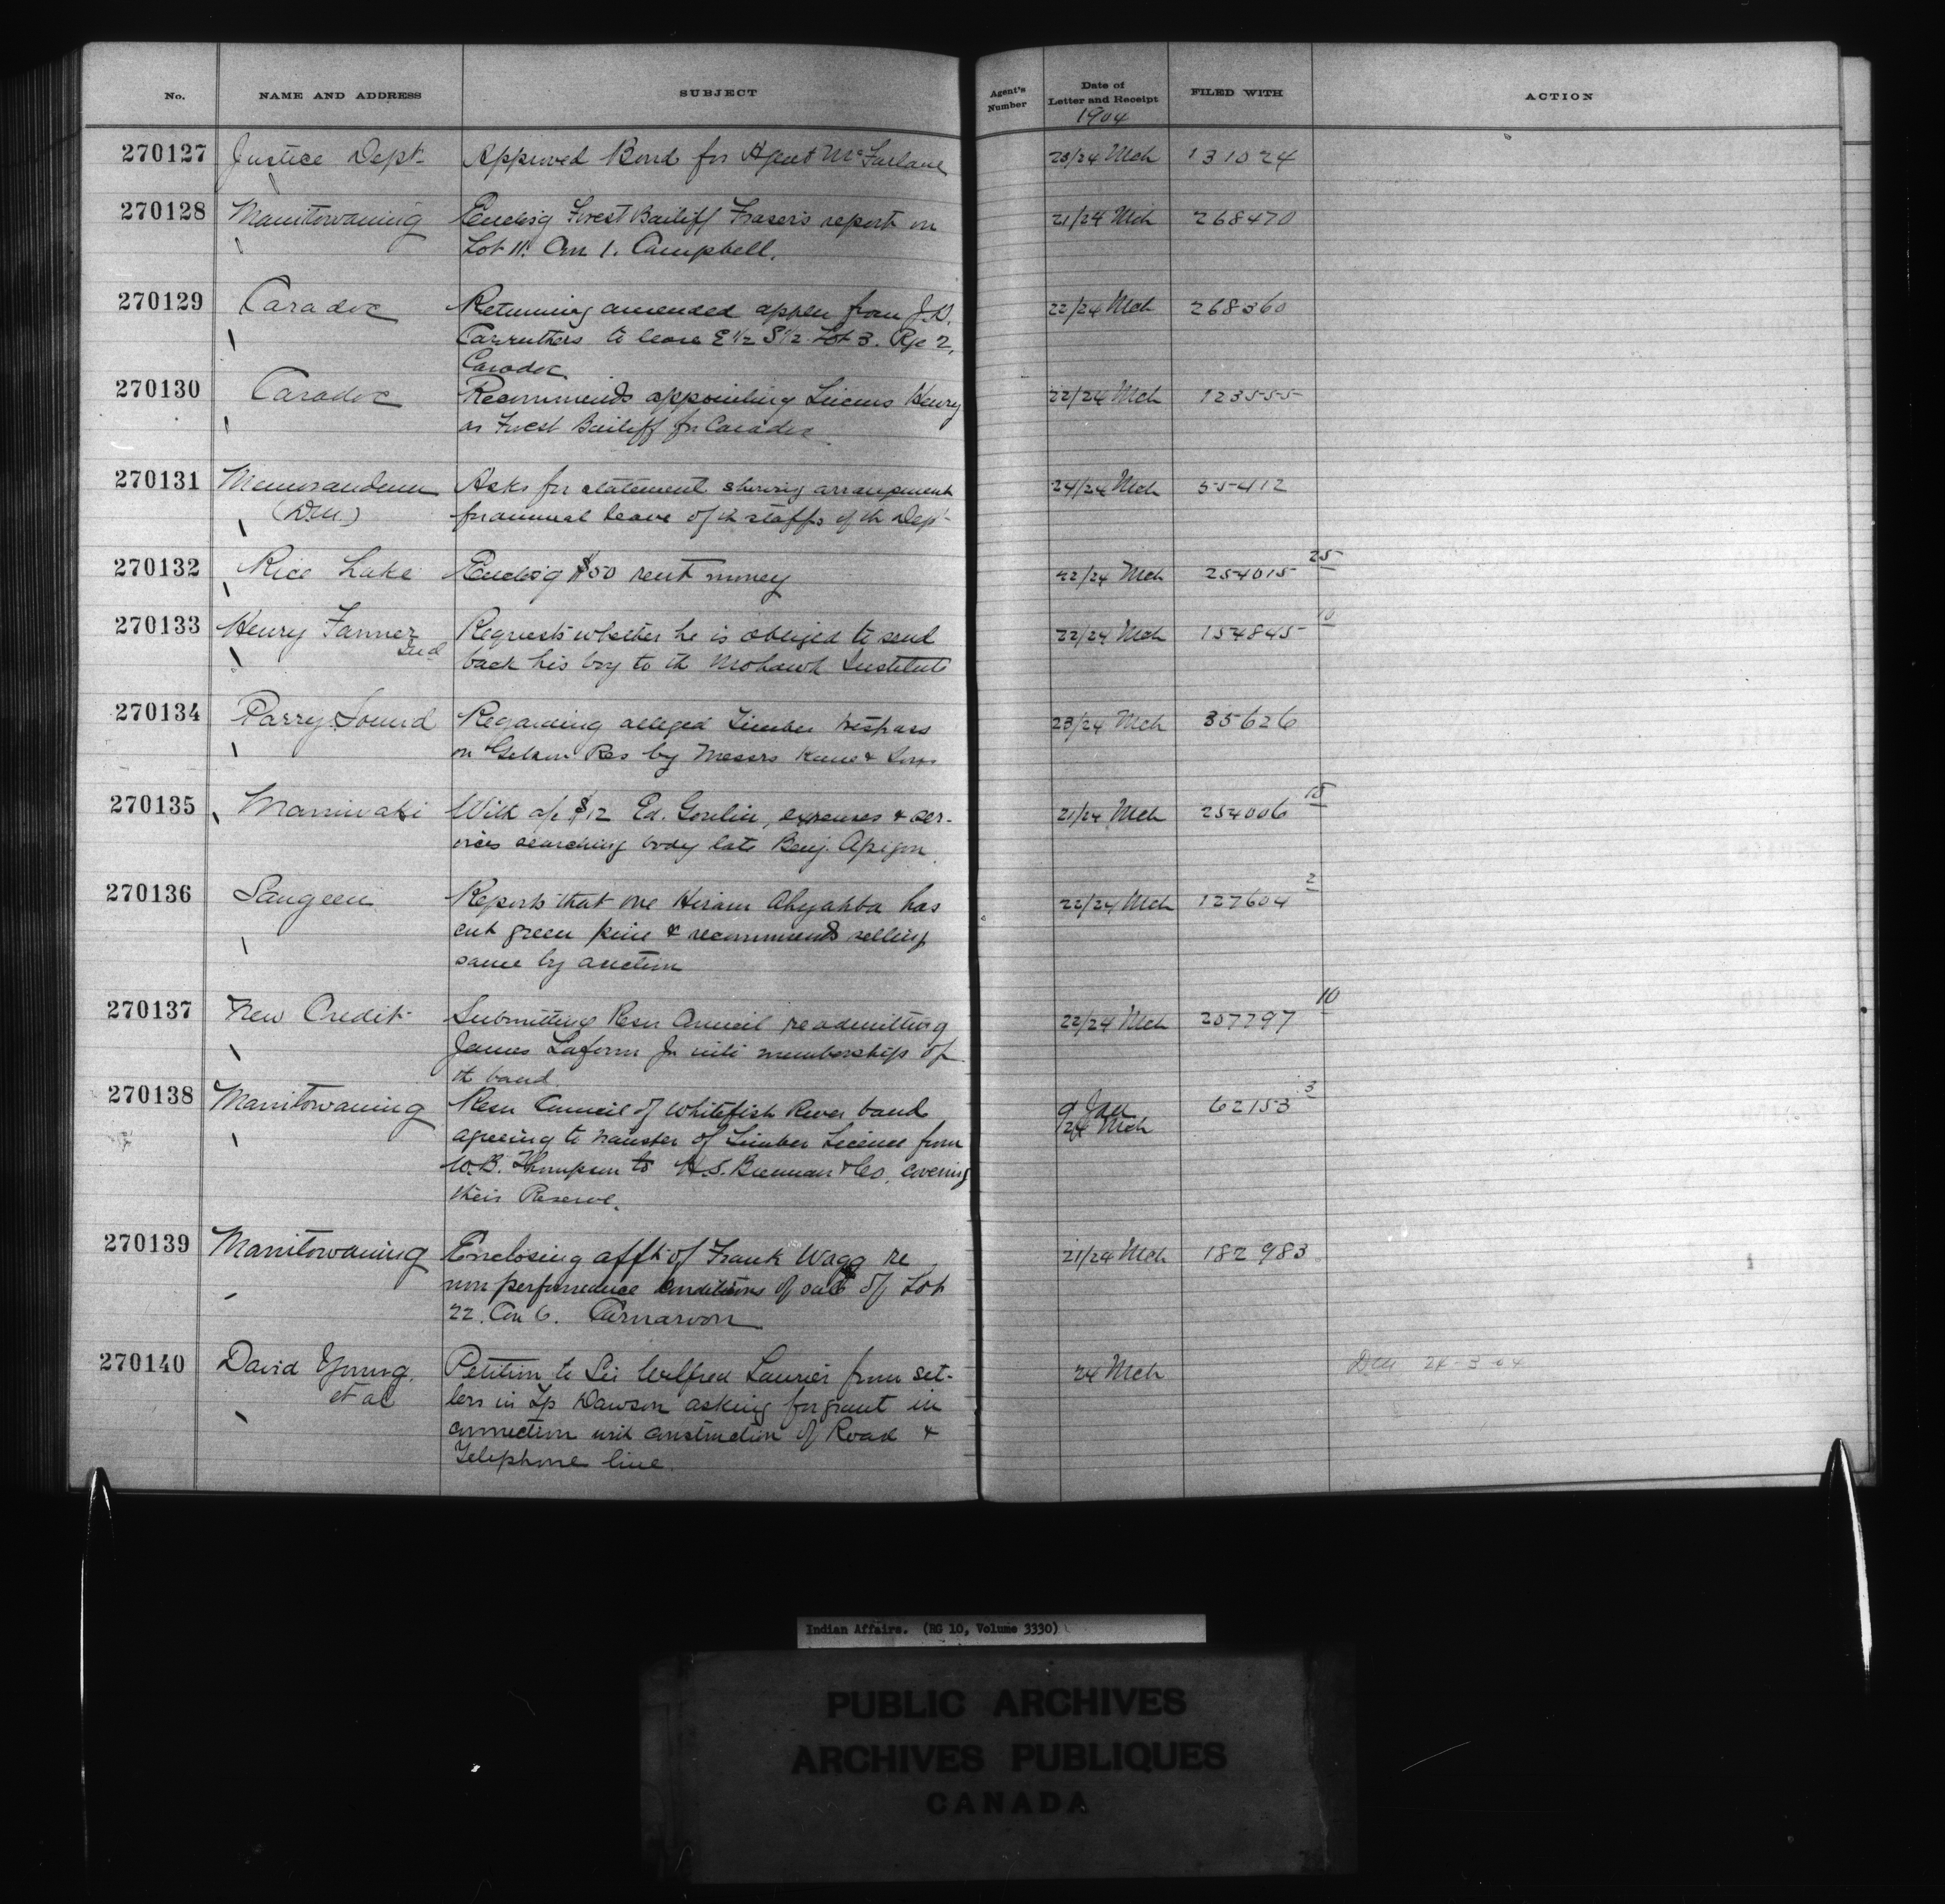 No. NAME AND ADDRESS SUBJECT Agent's Number Date of Letter and Receipt FILED WITH ACTION
1904
270127 Justice Dept. Approved Bond for Agent McFarlane 23/24 Mch 131024
270128 Manitowaning Enclos'g Forest Bailiff Fraser's report on 21/24 Mch 268470
Lot 11. Con 1. Campbell.
270129 Caradoc Returning amended appln from J.D. 22/24 Mch 268360
Carruthers to lease E 1/2 S 1/2 Lot 3. Rge 2,
Caradoc
270130 Caradoc Recommends appointing Henry 22/24 Mch 123555
as Forest Bailiff for Caradoc
270131 Memorandum Asks for statement showing arrangement 24/24 Mch 55412
(D.M.) for annual leave of th staffs of th Dept
270132 Rice Lake Enclos'g $50 rent money 22/24 Mch 254015 25
270133 Henry Fanner Requests whether he is obliged to send 22/24 Mch 154845 10
Ind back his boy to th Mohawk Institute
270134 Parry Sound Regarding alleged Timber trespass 23/24 Mch 35626
on Gibson Res by Messrs Kaue & Sons
270135 Maniwaki With a/c $12 Ed. Gorlin, expenses & ser- 21/24 Mch 254006 15
vices searching body late Benj. Apigon
270136 Saugeen Reports that one Hiram Ahyahba has 22/24 Mch 127604 2
cut green pine & recommends selling
same by auction
270137 New Credit Submitting Resn Council readmitting 22/24 Mch 207797 10
James Laform Jr into memberships of
th band.
270138 Manitowaning Resn Council of Whitefish River band 9 Jan 62153 3
agreeing to transfer of Timber Licence from /24 Mch
W.B. Thompson to H.S. Brennan & Co. covering
their Reserve.
270139 Manitowaning Enclosing afft of Frank Wagg re 21/24 Mch 182983
non performance conditions of sale of Lot
22. Con 6. Carnarvon
270140 David Young Petition to Sir Wilfred Laurier from set- 24 Mch DM 24-3-04
et al lers in Tp Dawson asking for grant in
connection with construction of Road &
Telephone line.
Indian Affairs. (RG 10, Volume 3330)
PUBLIC ARCHIVES
ARCHIVES PUBLIQUES
CANADA